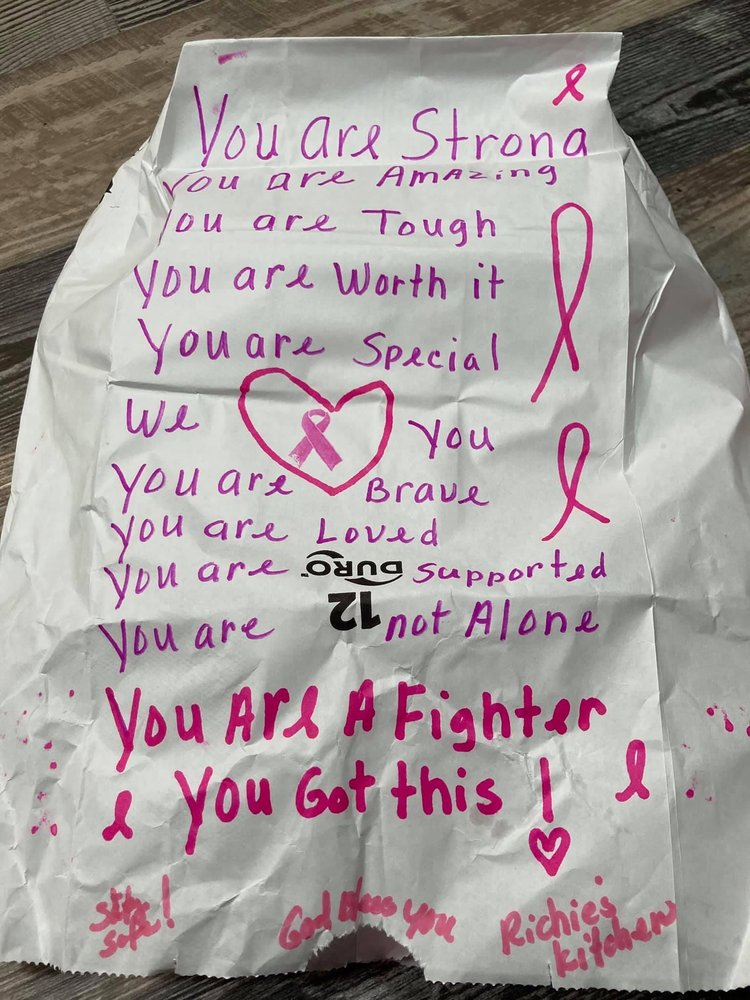 You are Strong
You are Amazing
You are Tough
You are Worth it
You are Special
We You
You are Brave
You are Loved
You are DURO supported
You are 12 not Alone
You Are A Fighter
You Got this !
Stay safe! God Bless you Richie's
kitchen